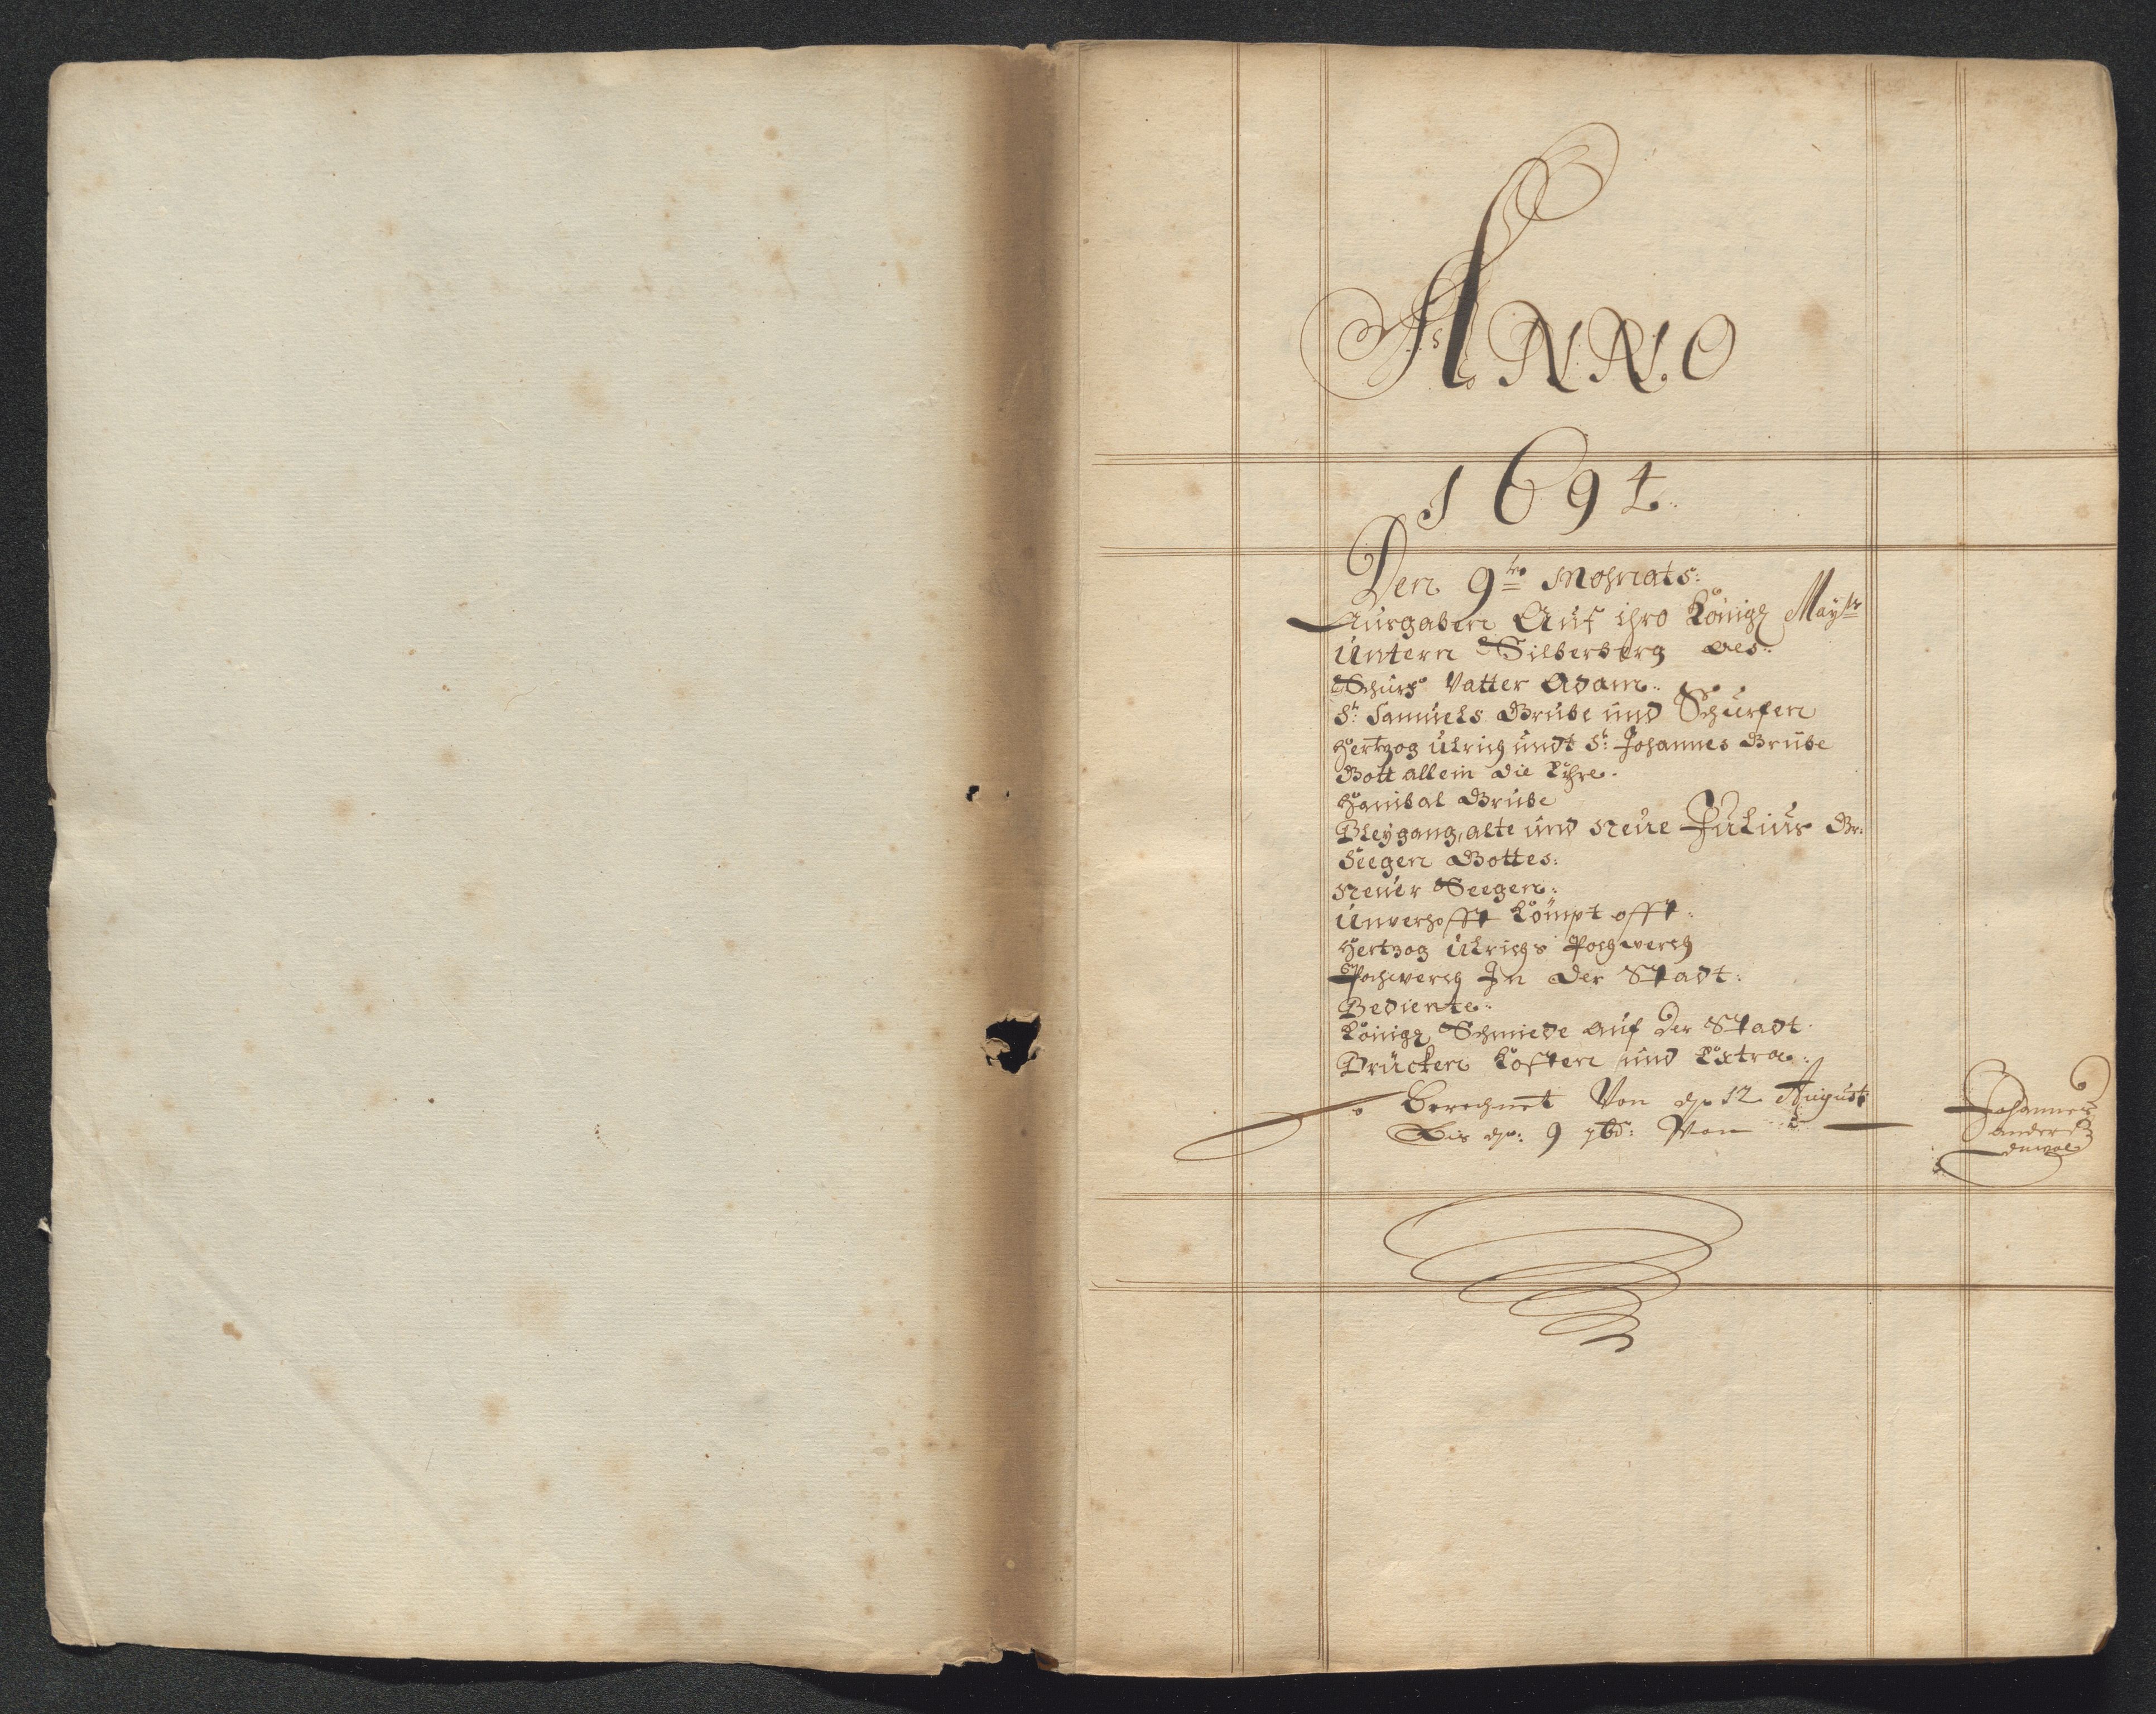 ANNO
1694.
Den 9te Mohnats:
Ausgaben Auf ihro Königl Mayttr
Untern Silberberg als:
Schurf Vatter Adam:
St: Samuels Grube und Schürfen
Hertzog Ulrich undt St: Johannes Grube
Gott allein die Ehre.
Hanibal Grube
Bleygang, alte und Neue Julius Gr:
Seegen Gottes:
Neuer Seegen:
Unverhofft kömpt offt:
Hertzog Ulrichs Pochwerch
Pochwerch In der Stadt:
Bediente:
Königl Schmiede auf der Stadt.
Brücken kosten und Extra:
Berechnet Von dn 12 August
Bis dn: 9 7br: Von
Johannes